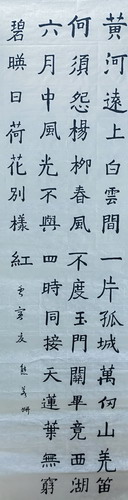 黃河遠上白雲間一片孤城萬仞山羌笛
何須怨楊柳春風不度玉門關畢竟西湖
六月中風光不與四時同接天蓮葉無窮
碧暎日荷花別樣紅